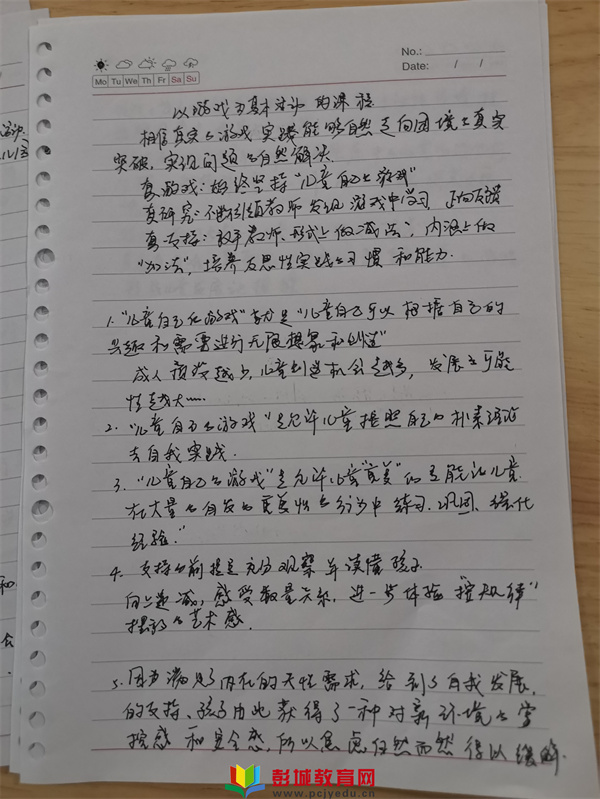 No.:
Mo Tu We Th Fr Sa Su
Date: / /
以游戏为基本活动的课程
相信真实的游戏实践能够自然走向困境的真实
突破,实现问题的自然解决.
真游戏:始终坚持“儿童自己的游戏”
真研究:不断引领教师发现游戏中学习
真支持:教师、形式上做“减法”,内涵上做
“加法”,培养反思性实践的习惯和能力.
1.“儿童自己的游戏”就是“儿童自己可以根据自己的
兴趣和需要进行无限想象和创造”
成人预设越少,儿童创造机会越多,发展的可能
性越大……
2.“儿童自己的游戏”是允许儿童按照自己的朴素经验
去自我实践.
3.“儿童自己的游戏”是允许儿童“重复”的
在大量的自发的重复性的行为中练习、巩固、强化
经验.”
4.支持的前提是充分观察并读懂孩子
向上递减,感受数量关系,进一步体验“按规律”
排列的艺术感.
5.因为满足了内在的天性需求,给到了自我发展,
的支持、孩子由此获得了一种对新环境的掌
控感和安全感,所以焦虑自然而然得以缓解.
彭城教育网
www.pcjyedu.cn